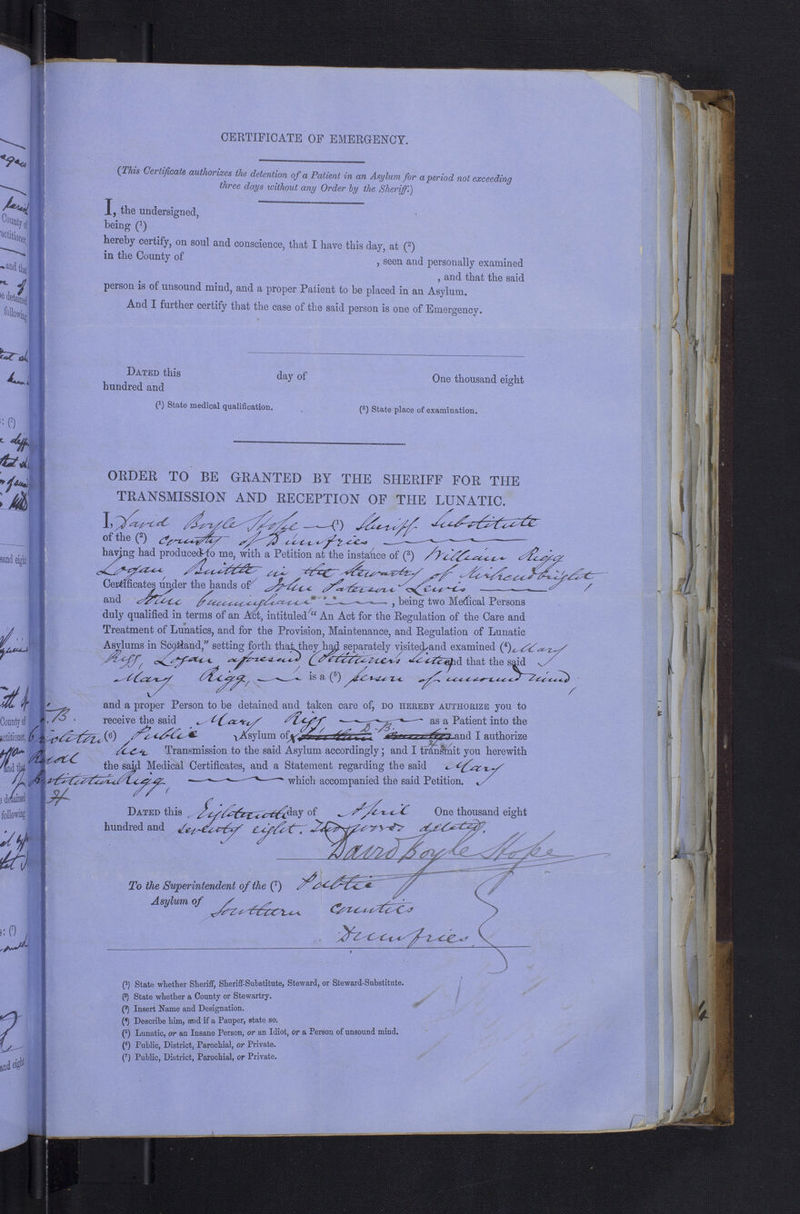 CERTIFICATE OF EMERGENCY.
(This Certificate authorizes the detention of a Patient in an Asylum for a period not exceeding
three days without any Order by the Sheriff.)
I, the undersigned,
being (1)
hereby certify, on soul and conscience, that I have this day, at (2)
in the County of , seen and personally examined
, and that the said
person is of unsound mind, and a proper Patient to be placed in an Asylum.
And I further certify that the case of the said person is one of Emergency.
DATED this day of One thousand eight
hundred and
(1) State medical qualification. (2) State place of examination.
ORDER TO BE GRANTED BY THE SHERIFF FOR THE
TRANSMISSION AND RECEPTION OF THE LUNATIC.
I, David Boyle Hope (1) Sheriff Substitute
of the (2) County of Dumfries
having had produced to me, with a Petition at the instance of (3) William Rigg
Logan Buittle in the Stewartry of Kirkcudbright,
Certificates under the hands of John Paterson Lewis
and John Cunningham , being two Medical Persons
duly qualified in terms of an Act, intituled "An Act for the Regulation of the Care and
Treatment of Lunatics, and for the Provision, Maintenance, and Regulation of Lunatic
Asylums in Scotland," setting forth that they had separately visited and examined (4) Mary
Rigg, Logan aforesaid (Petitioner's Sister) and that the said
Mary Rigg, is a (5) person of unsound mind,
and a proper Person to be detained and taken care of, DO HEREBY AUTHORIZE you to
receive the said Mary Rigg as a Patient into the
(6) Public Asylum of Southern Counties and I authorize
her Transmission to the said Asylum accordingly; and I transmit you herewith
the said Medical Certificates, and a Statement regarding the said Mary
Rigg, which accompanied the said Petition.
DATED this Eighteenth day of April One thousand eight
hundred and seventy eight. Two words deleted.
David Boyle Hope
To the Superintendent of the (7) Public
Asylum of Southern Counties
Dumfries
(1) State whether Sheriff, Sheriff-Substitute, Steward, or Steward-Substitute.
(2) State whether a County or Stewartry.
(3) Insert Name and Designation.
(4) Describe him, and if a Pauper, state so.
(5) Lunatic, or an Insane Person, or an Idiot, or a Person of unsound mind.
(6) Public, District, Parochial, or Private.
(7) Public, District, Parochial, or Private.